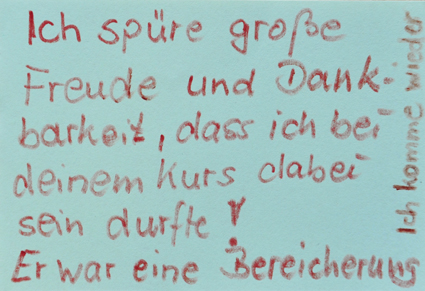 Ich spüre große
Freude und Dank-
barkeit, dass ich bei
deinem Kurs dabei
sein durfte!
Er war eine Bereicherung
Ich komme wieder